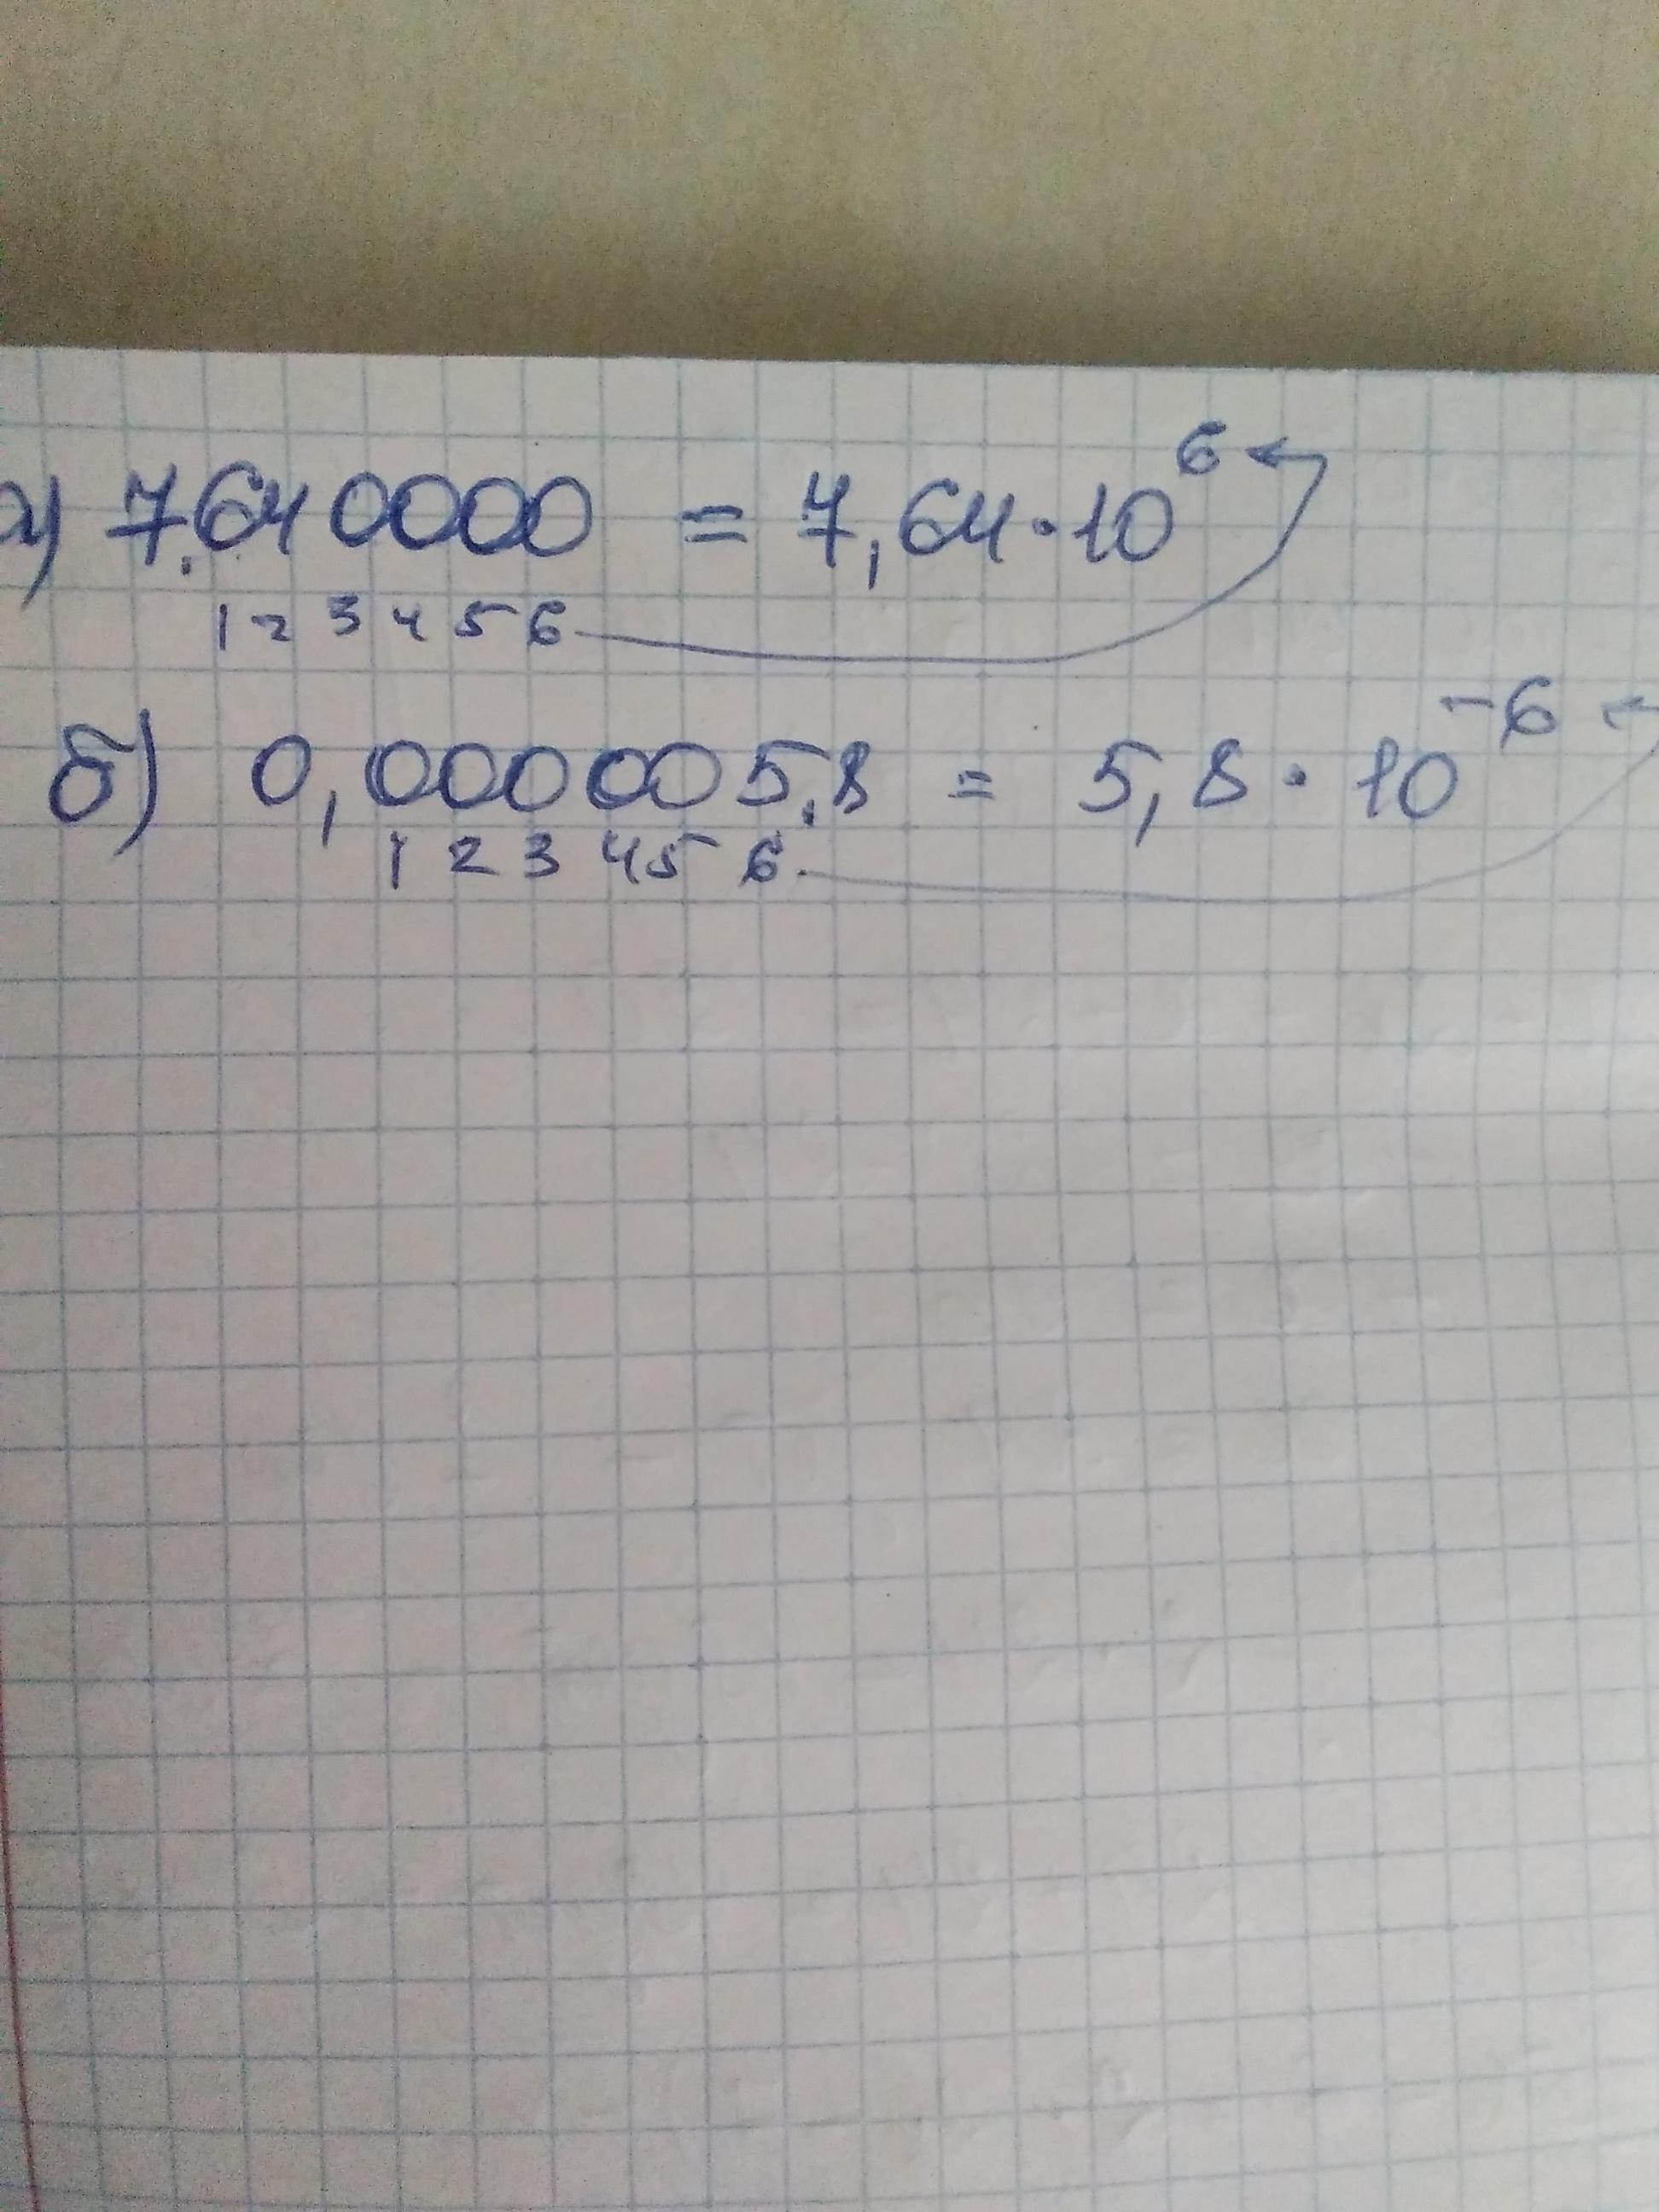 а) 7,640000 = 7,64·10⁶
1 2 3 4 5 6
б) 0,000005,8 = 5,8·10⁻⁶
1 2 3 4 5 6